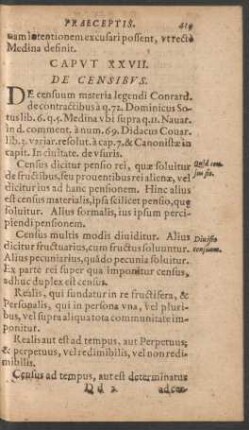 PRAECEPTIS. 419
uam intentionem excusari possent, vt rectè
Medina definit.
CAPVT XXVII.
DE CENSIBVS.
DE censuum materia legendi Conrard.
de contractibus à q.72. Dominicus So-
tus lib. 6. q.5. Medina vbi supra q.11. Nauar.
in d. comment. à num. 69. Didacus Couar.
lib.3. variar. resolut. à cap.7. & Canonistæ in
capit. In ciuitate. de vsuris.
Census dicitur pensio rei, quæ soluitur
de fructibus, seu prouentibus rei alienæ, vel
dicitur ius ad hanc pensionem. Hinc alius
est census materialis, ipsa scilicet pensio, quę
soluitur. Alius formalis, ius ipsum perci-
piendi pensionem.
Quid cen-
sus sit.
Census multis modis diuiditur. Alius
dicitur fructuarius, cum fructus soluuntur.
Alius pecuniarius, quãdo pecunia soluitur.
Ex parte rei super qua imponitur census,
adhuc duplex est census.
Diuisio
censuum.
Realis, qui fundatur in re fructifera, &
Personalis, qui in persona vna, vel pluri
bus, vel supra aliqua tota communitate im-
ponitur.
Realis aut est ad tempus, aut Perpetuus;
& perpetuus, vel redimibilis, vel non redi-
mibilis.
Census ad tempus, aut est determinatus
D d 2